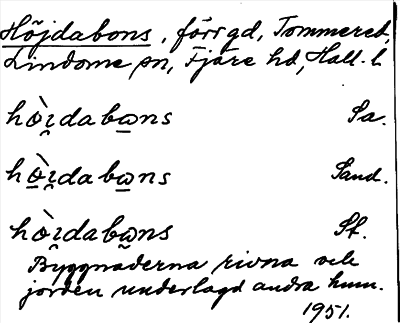 Höjdabons, förr gd, Tommered,
Lindome sn, Fjäre hd, Hall. l.
hò̯ɪdabω̲ns Sa.
hò̲ɪ̯dabω̲ns Sand.
hòɪ̯dabω̲ns St.
Byggnaderna rivna och
jorden underlagd andra hem.
1951.